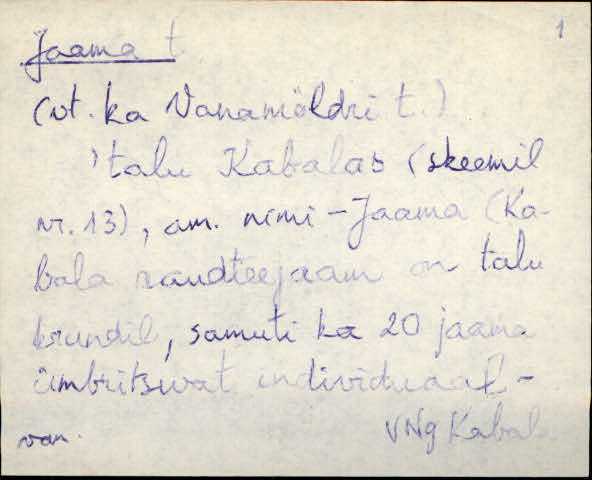 1
Jaama t
(vt. ka Vanamöldri t.)
'talu Kabalas (skeemil
nr. 13), am. nimi - Jaama (Ka-
bala raudteejaam on talu
krundil, samuti ka 20 jaama
ümbritsevat individuaal-
van. VNg Kabala